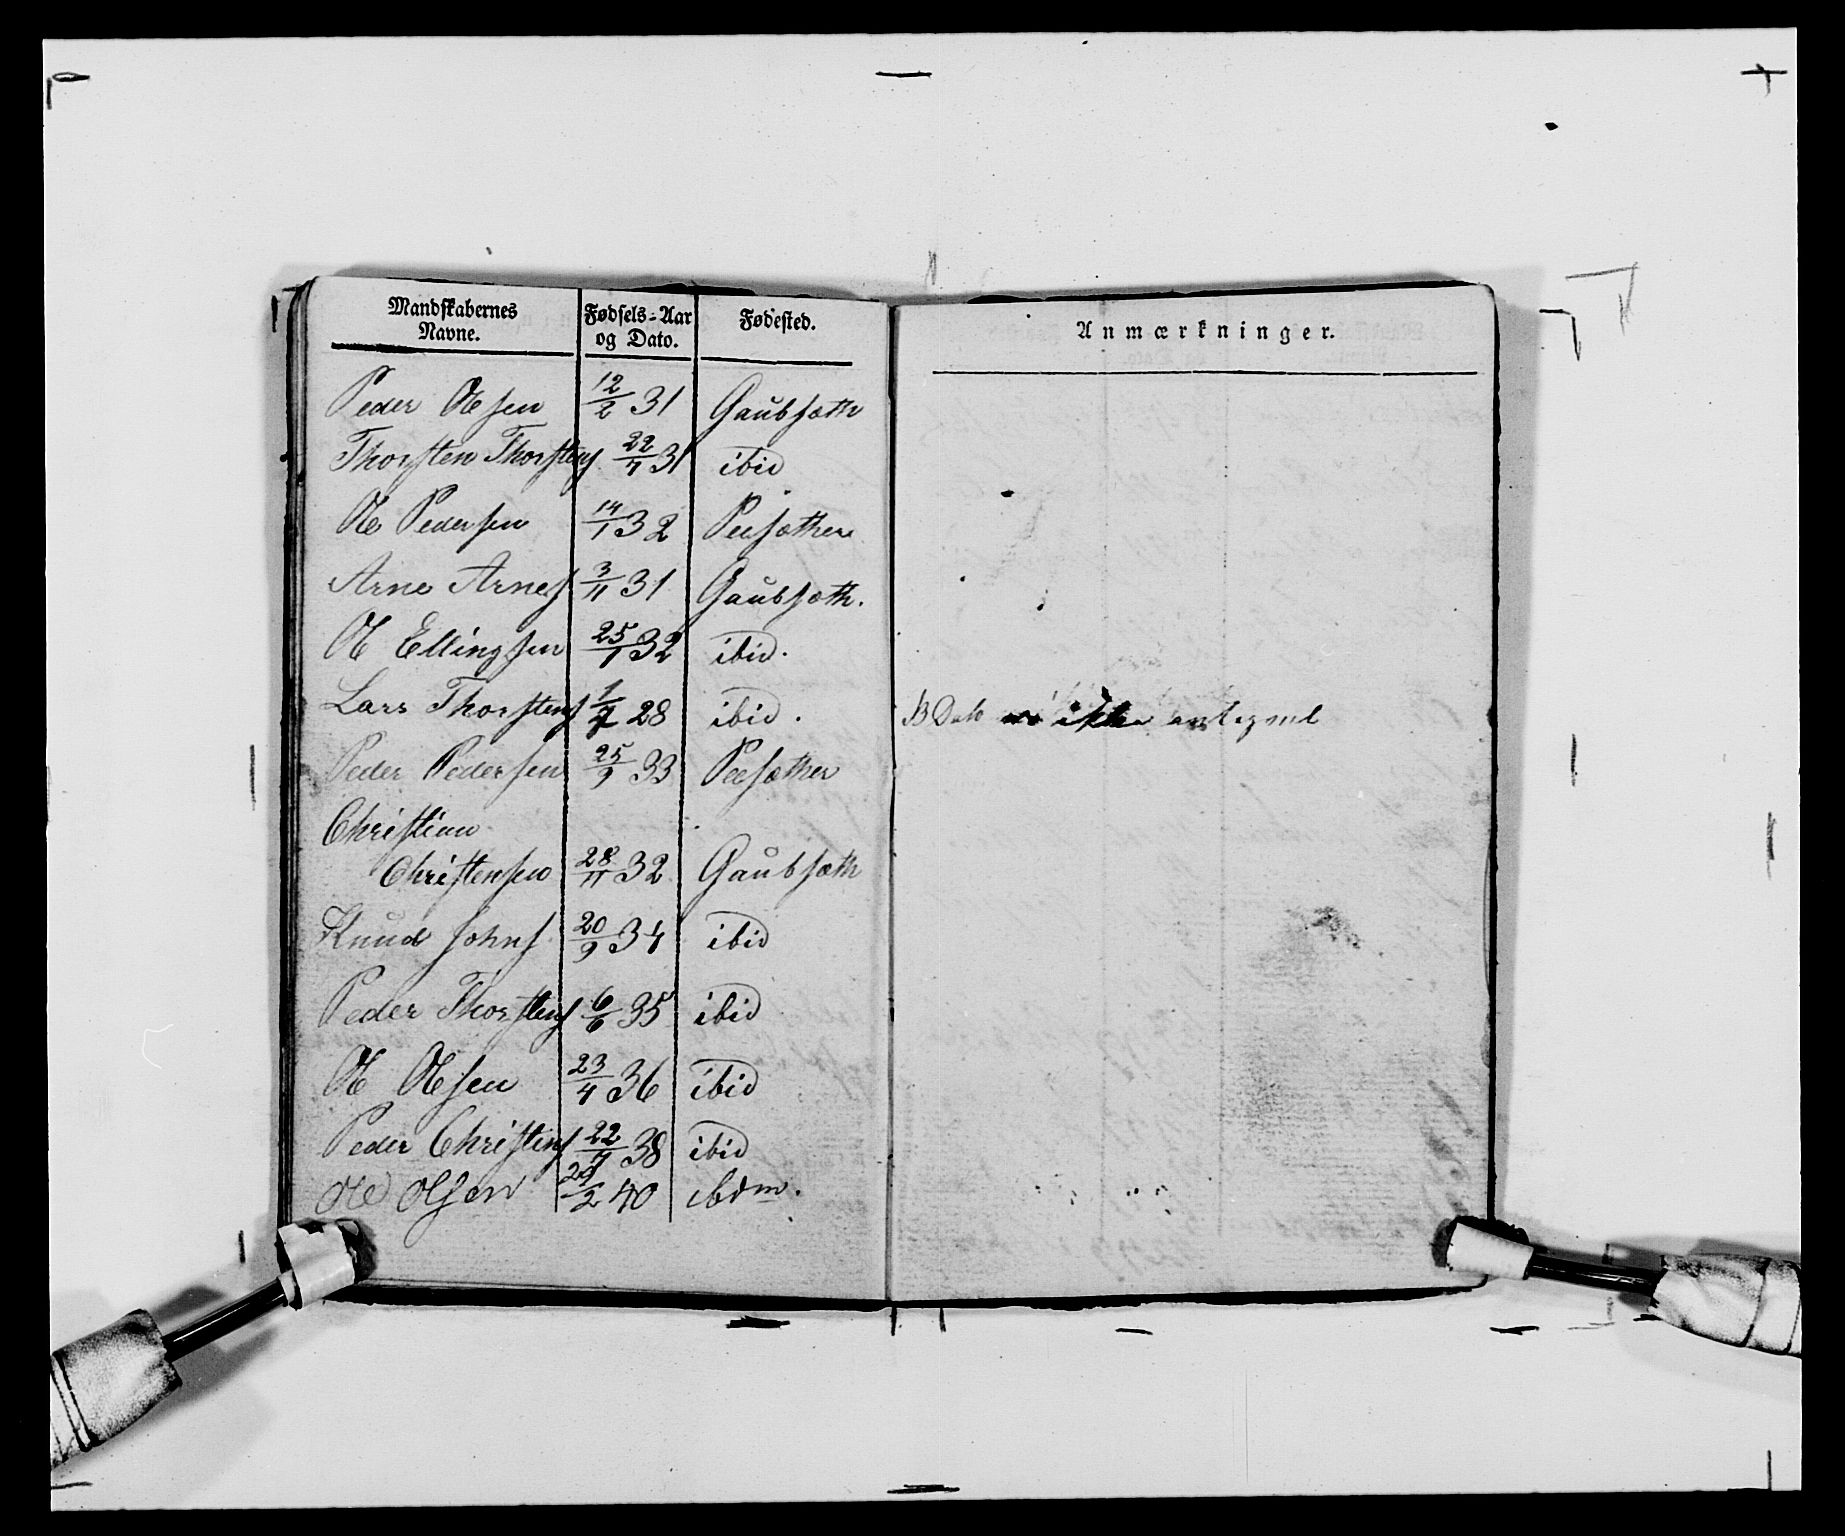 Mandskabernes Navne. Fødsels-Aar og Dato. Fødested. Anmærkninger.
Peder Olsen 12/2 31 Gaubsæth
Thorsten Thorstens 22/7 31 ibid
Ole Pedersen 14/1 32 Peesæther
Arne Arnes 3/11 31 Gaubsæth.
Ole Ellingsen 25/1 32 ibid.
Lars Thorstens 28 ibid. ikke
Peder Pedersen 25/9 33 Peesæther
Christian
Christensen 28/11 32 Gaubsæth
Knud Johns 20/9 34 ibid
Peder Thorstens 6/6 35 ibid
Ole Olsen 23/4 36 ibid
Peder Christens 22/7 38 ibid
Ole Olsen 29/2 40 ibdm.